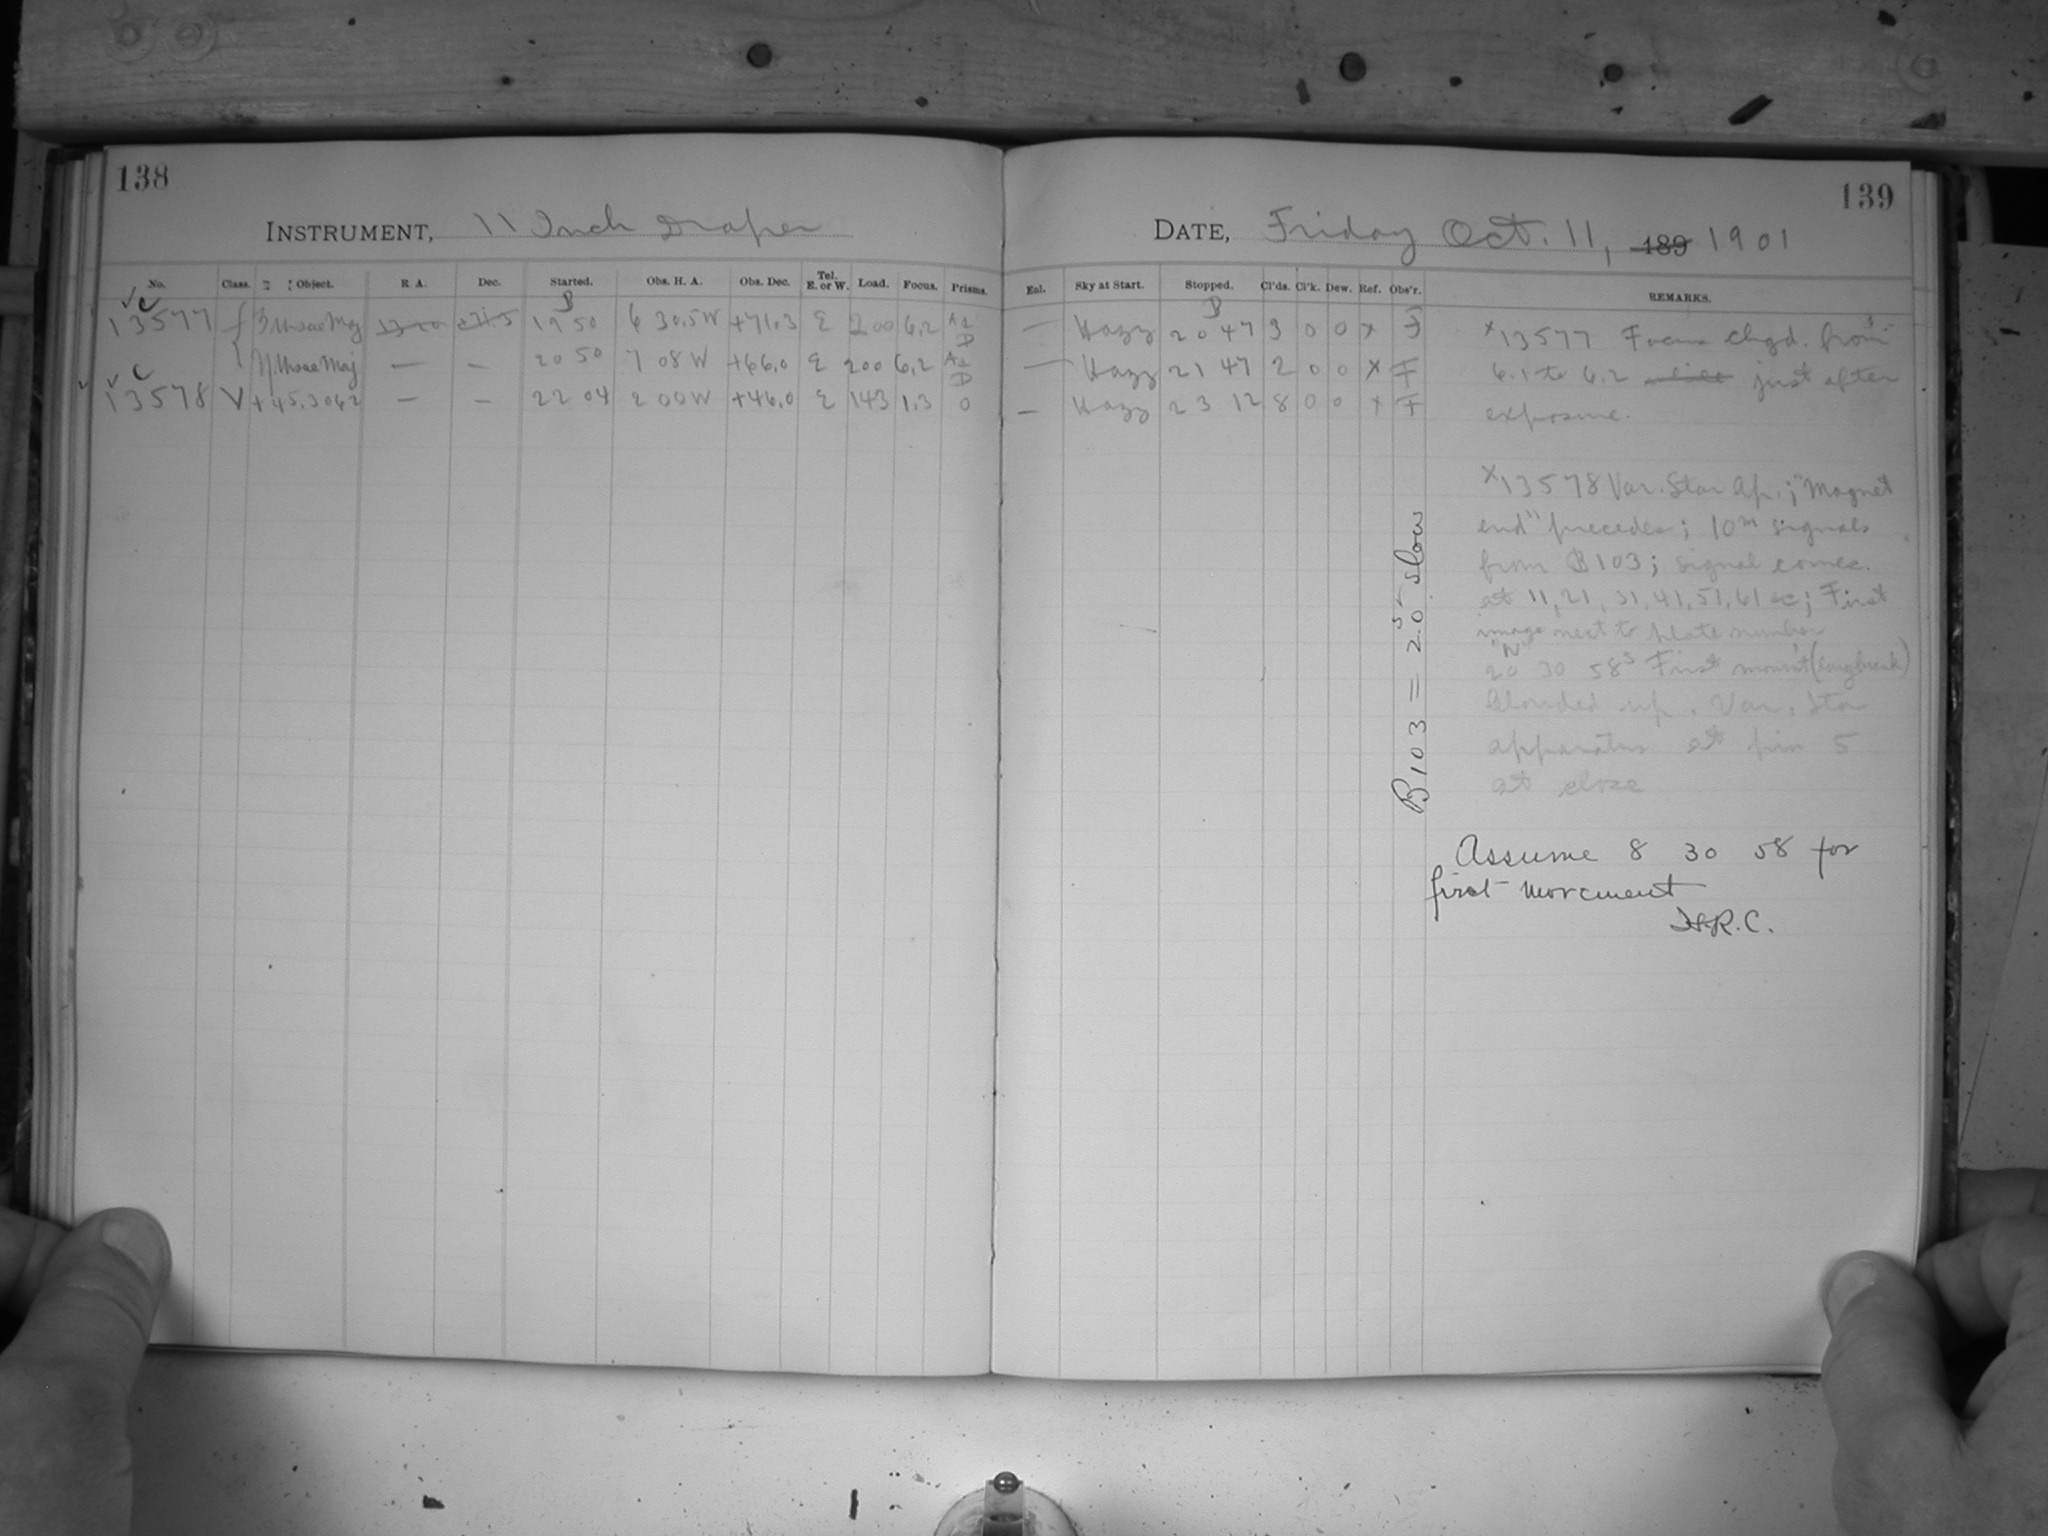 138
INSTRUMENT, 11 Inch Draper
No. Class. Object. R. A. Dec. Started. Obs. H. A. Obs. Dec. Tel. E. or W. Load. Focus. Prisms.
13577 ζ Ursae Maj 19 50 6 30.5W +71.3 E 200 6.2
η Ursae Maj — — 20 50 7 08 W +66.0 E 200 6.2
13578 V +45.3062 — — 22 04 2 00W +46.0 E 143 1.3 0
139
DATE, Friday Oct. 11, 189 1901
Eal. Sky at Start. Stopped. Cl'ds. Cl'k. Dew. Ref. Obs'r. REMARKS.
— Hazy 20 47 9 0 0 x F
— Hazy 21 47 2 0 0 x F
— Hazy 23 12 8 0 0 x F
x13577 Focus chgd. from
6.1 to 6.2 just after
exposure.
x13578 Var. Star Ap.; "Magnet
end" precedes; 10m signals
from B103; signal comes
at 11, 21, 31, 41, 51, 61 sc; First
image next to plate number
"N"
20 30 58s First movm't (long break)
Clouded up. Var. Star
apparatus at pin 5
at close
B103 = 2.0s slow
Assume 8 30 58 for
first movement
R.C.